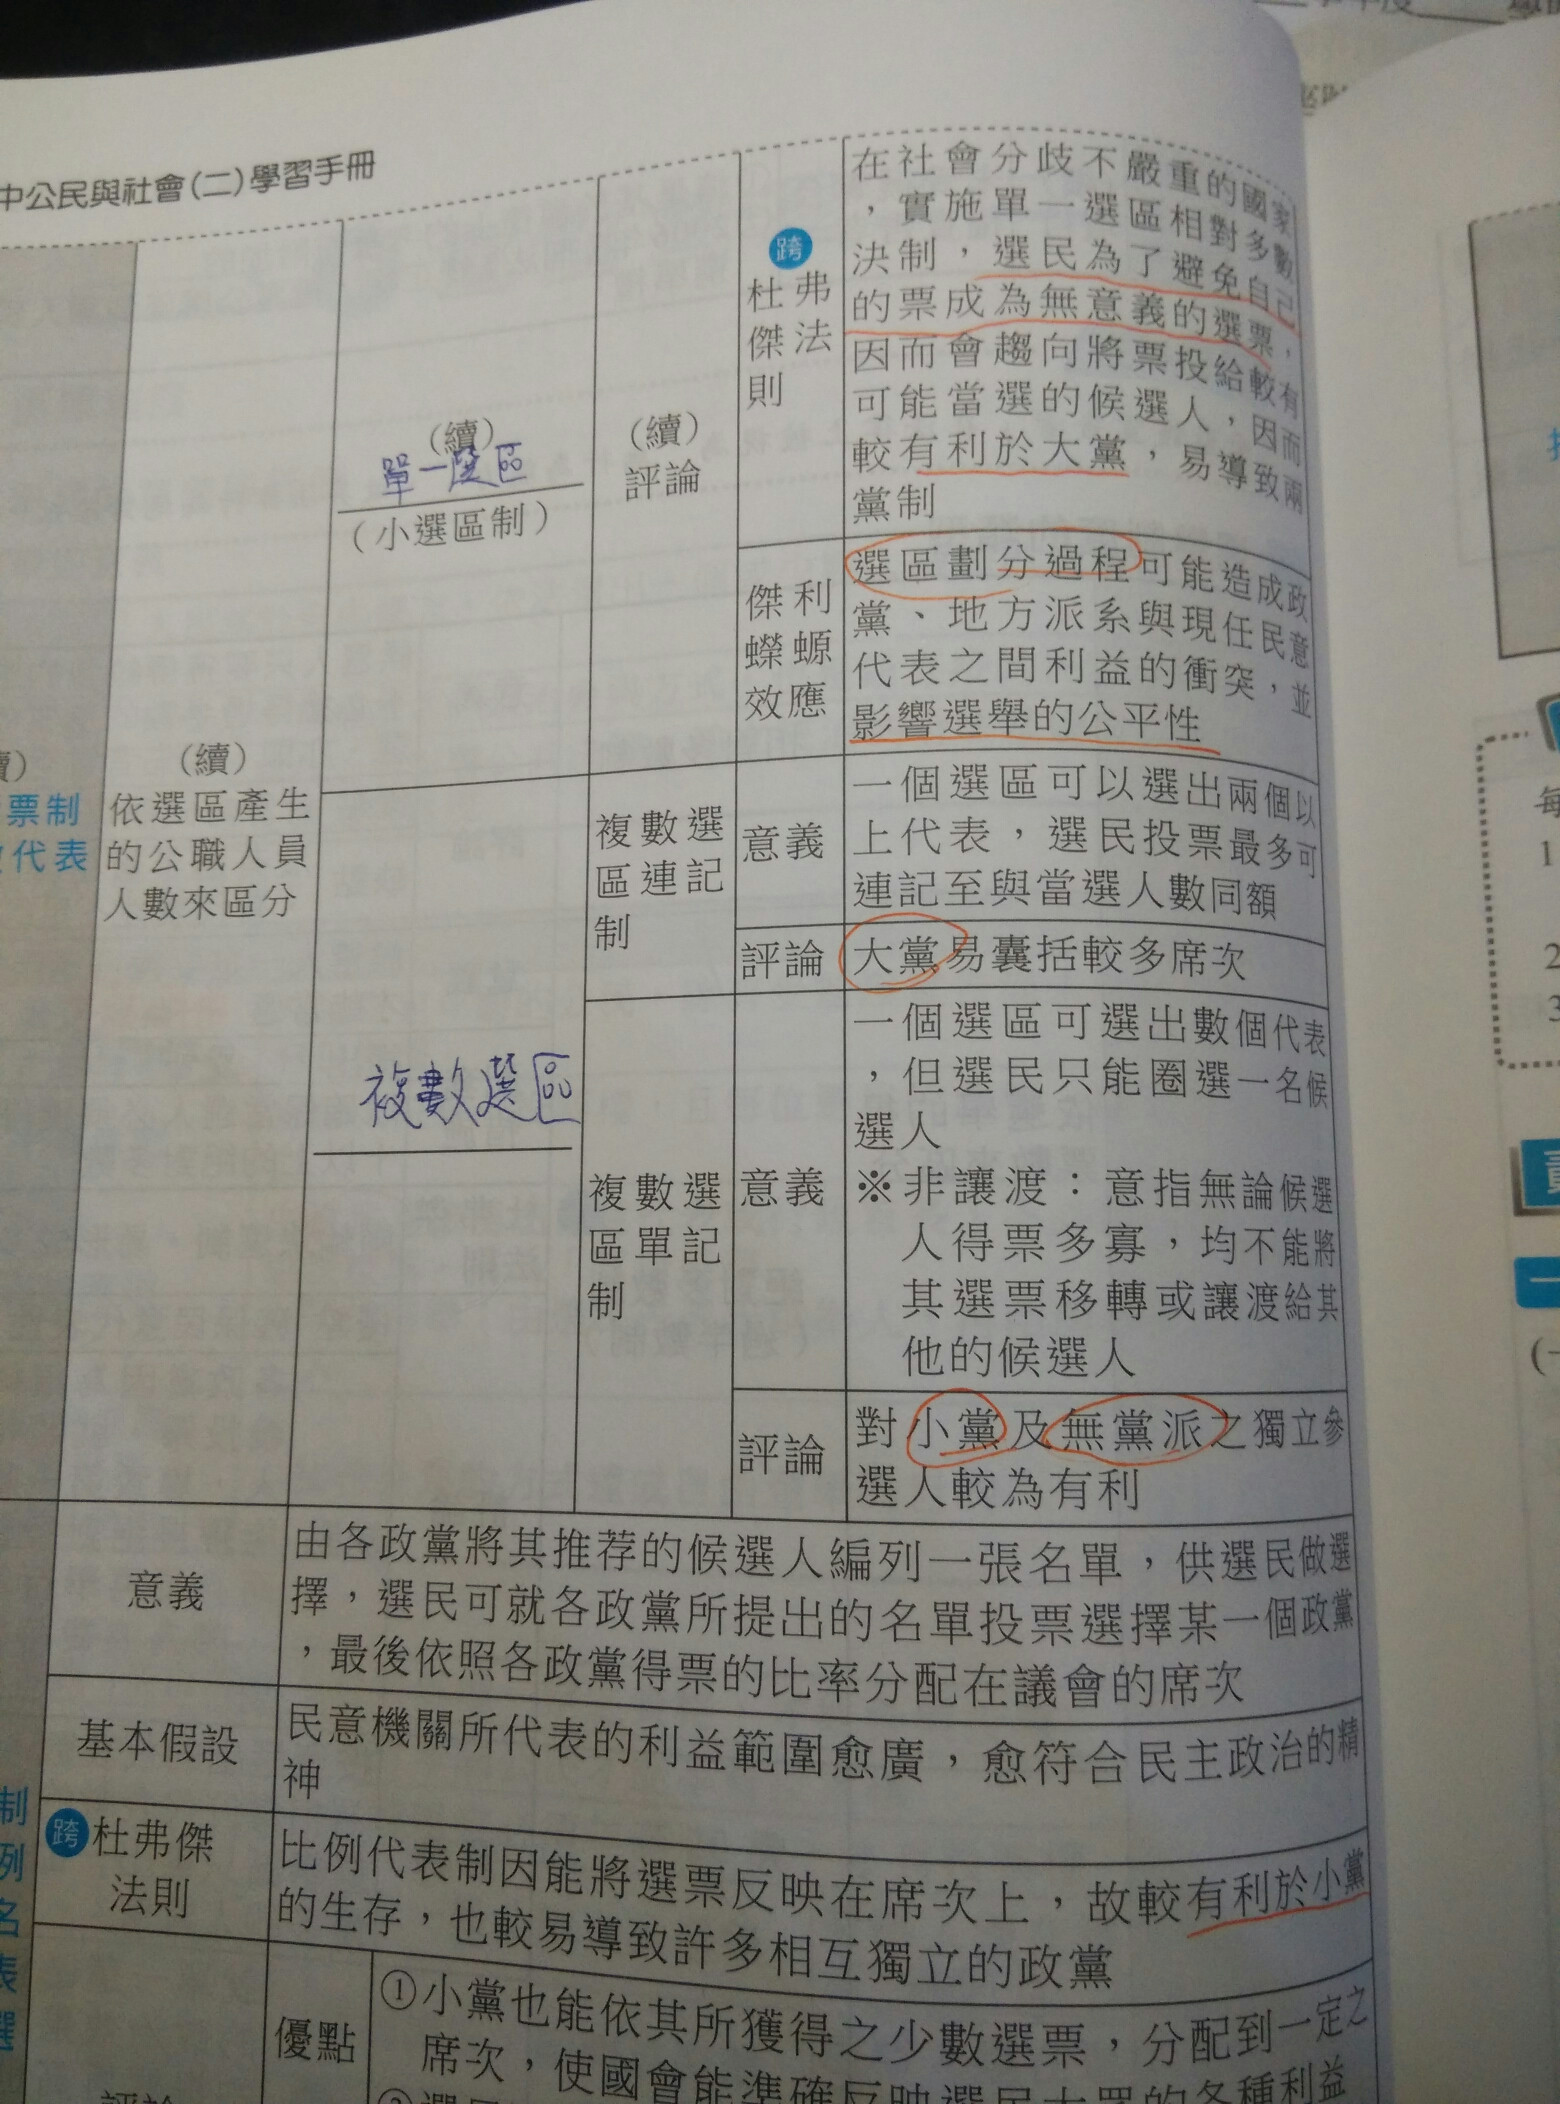 中公民與社會(二)學習手冊
(續)
依選區產生
的公職人員
人數來區分
票制
代表
(續)
單一選區
(小選區制)
(續)
評論
跨
杜弗
傑法
則
在社會分歧不嚴重的國家
，實施單一選區相對多數
決制，選民為了避免自己
的票成為無意義的選票，
因而會趨向將票投給較有
可能當選的候選人，因而
較有利於大黨，易導致兩
黨制
傑利
蠑螈
效應
選區劃分過程可能造成政
黨、地方派系與現任民意
代表之間利益的衝突，並
影響選舉的公平性
複數選區
複數選
區連記
制
意義
一個選區可以選出兩個以
上代表，選民投票最多可
連記至與當選人數同額
評論
大黨易囊括較多席次
複數選
區單記
制
意義
一個選區可選出數個代表
，但選民只能圈選一名候
選人
※非讓渡：意指無論候選
人得票多寡，均不能將
其選票移轉或讓渡給其
他的候選人
評論
對小黨及無黨派之獨立參
選人較為有利
意義
由各政黨將其推荐的候選人編列一張名單，供選民做選
擇，選民可就各政黨所提出的名單投票選擇某一個政黨
，最後依照各政黨得票的比率分配在議會的席次
基本假設
民意機關所代表的利益範圍愈廣，愈符合民主政治的精
神
跨
杜弗傑
法則
比例代表制因能將選票反映在席次上，故較有利於小黨
的生存，也較易導致許多相互獨立的政黨
優點
①小黨也能依其所獲得之少數選票，分配到一定之
席次，使國會能準確反映選民大眾的各種利益
評論
制
例
名
表
選
每
1
2
3
一